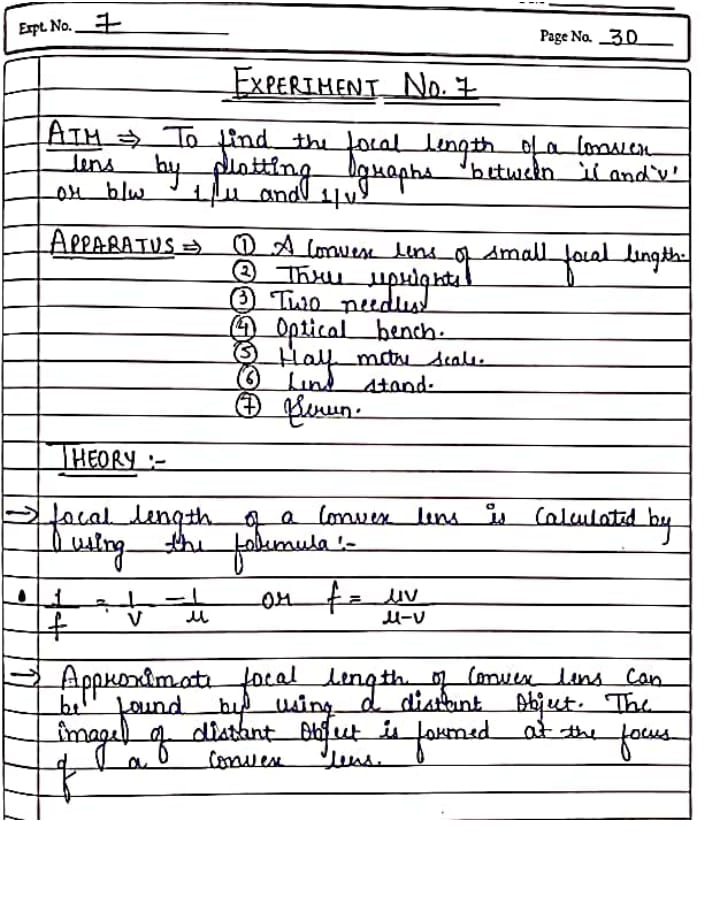 Expt. No. 7
Page No. 30
EXPERIMENT No. 7
AIM ⇒ To find the focal length of a Convex
lens by plotting graphs between 'u' and 'v'
or b/w 1/u and 1/v
APPARATUS ⇒ ① A Convex lens of small focal length.
② Three uprights
③ Two needles
④ Optical bench.
⑤ Half metre scale.
⑥ Lens stand.
⑦ Screen.
THEORY :-
→ focal length of a Convex lens is Calculated by
using the formula :-
• 1/f = 1/v - 1/u or f = uv/u-v
→ Approximate focal length of Convex lens Can
be found by using a distant Object. The
image of distant Object is formed at the focus
of a Convex lens.